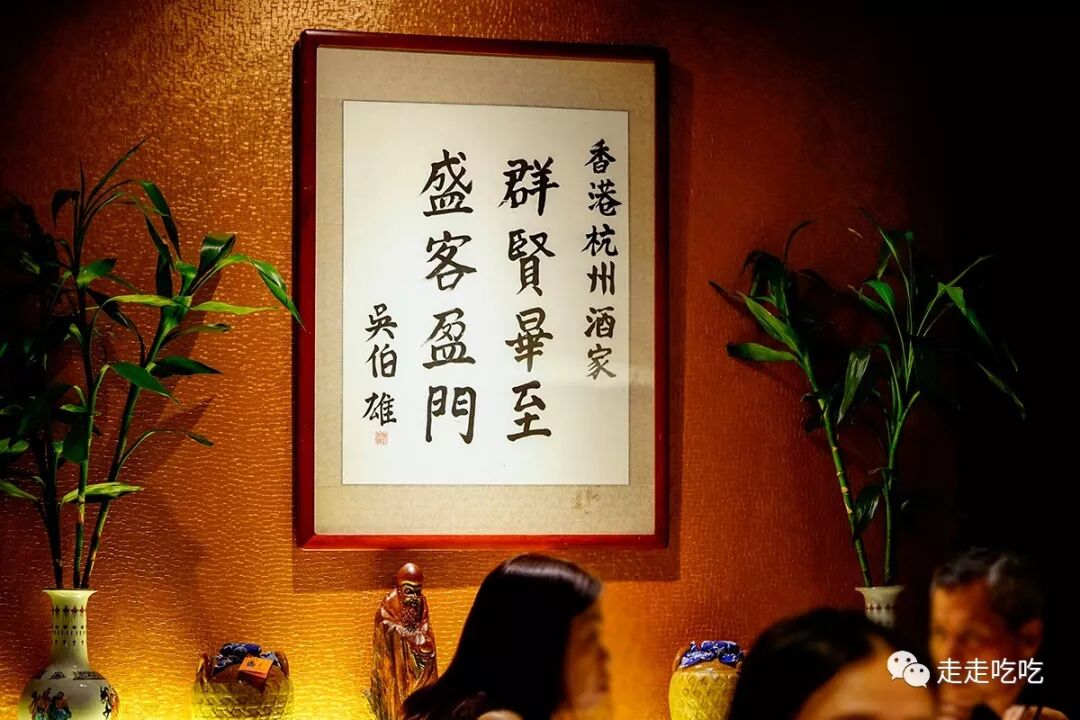 香港杭州酒家
群賢畢至
盛客盈門
吳伯雄
走走吃吃